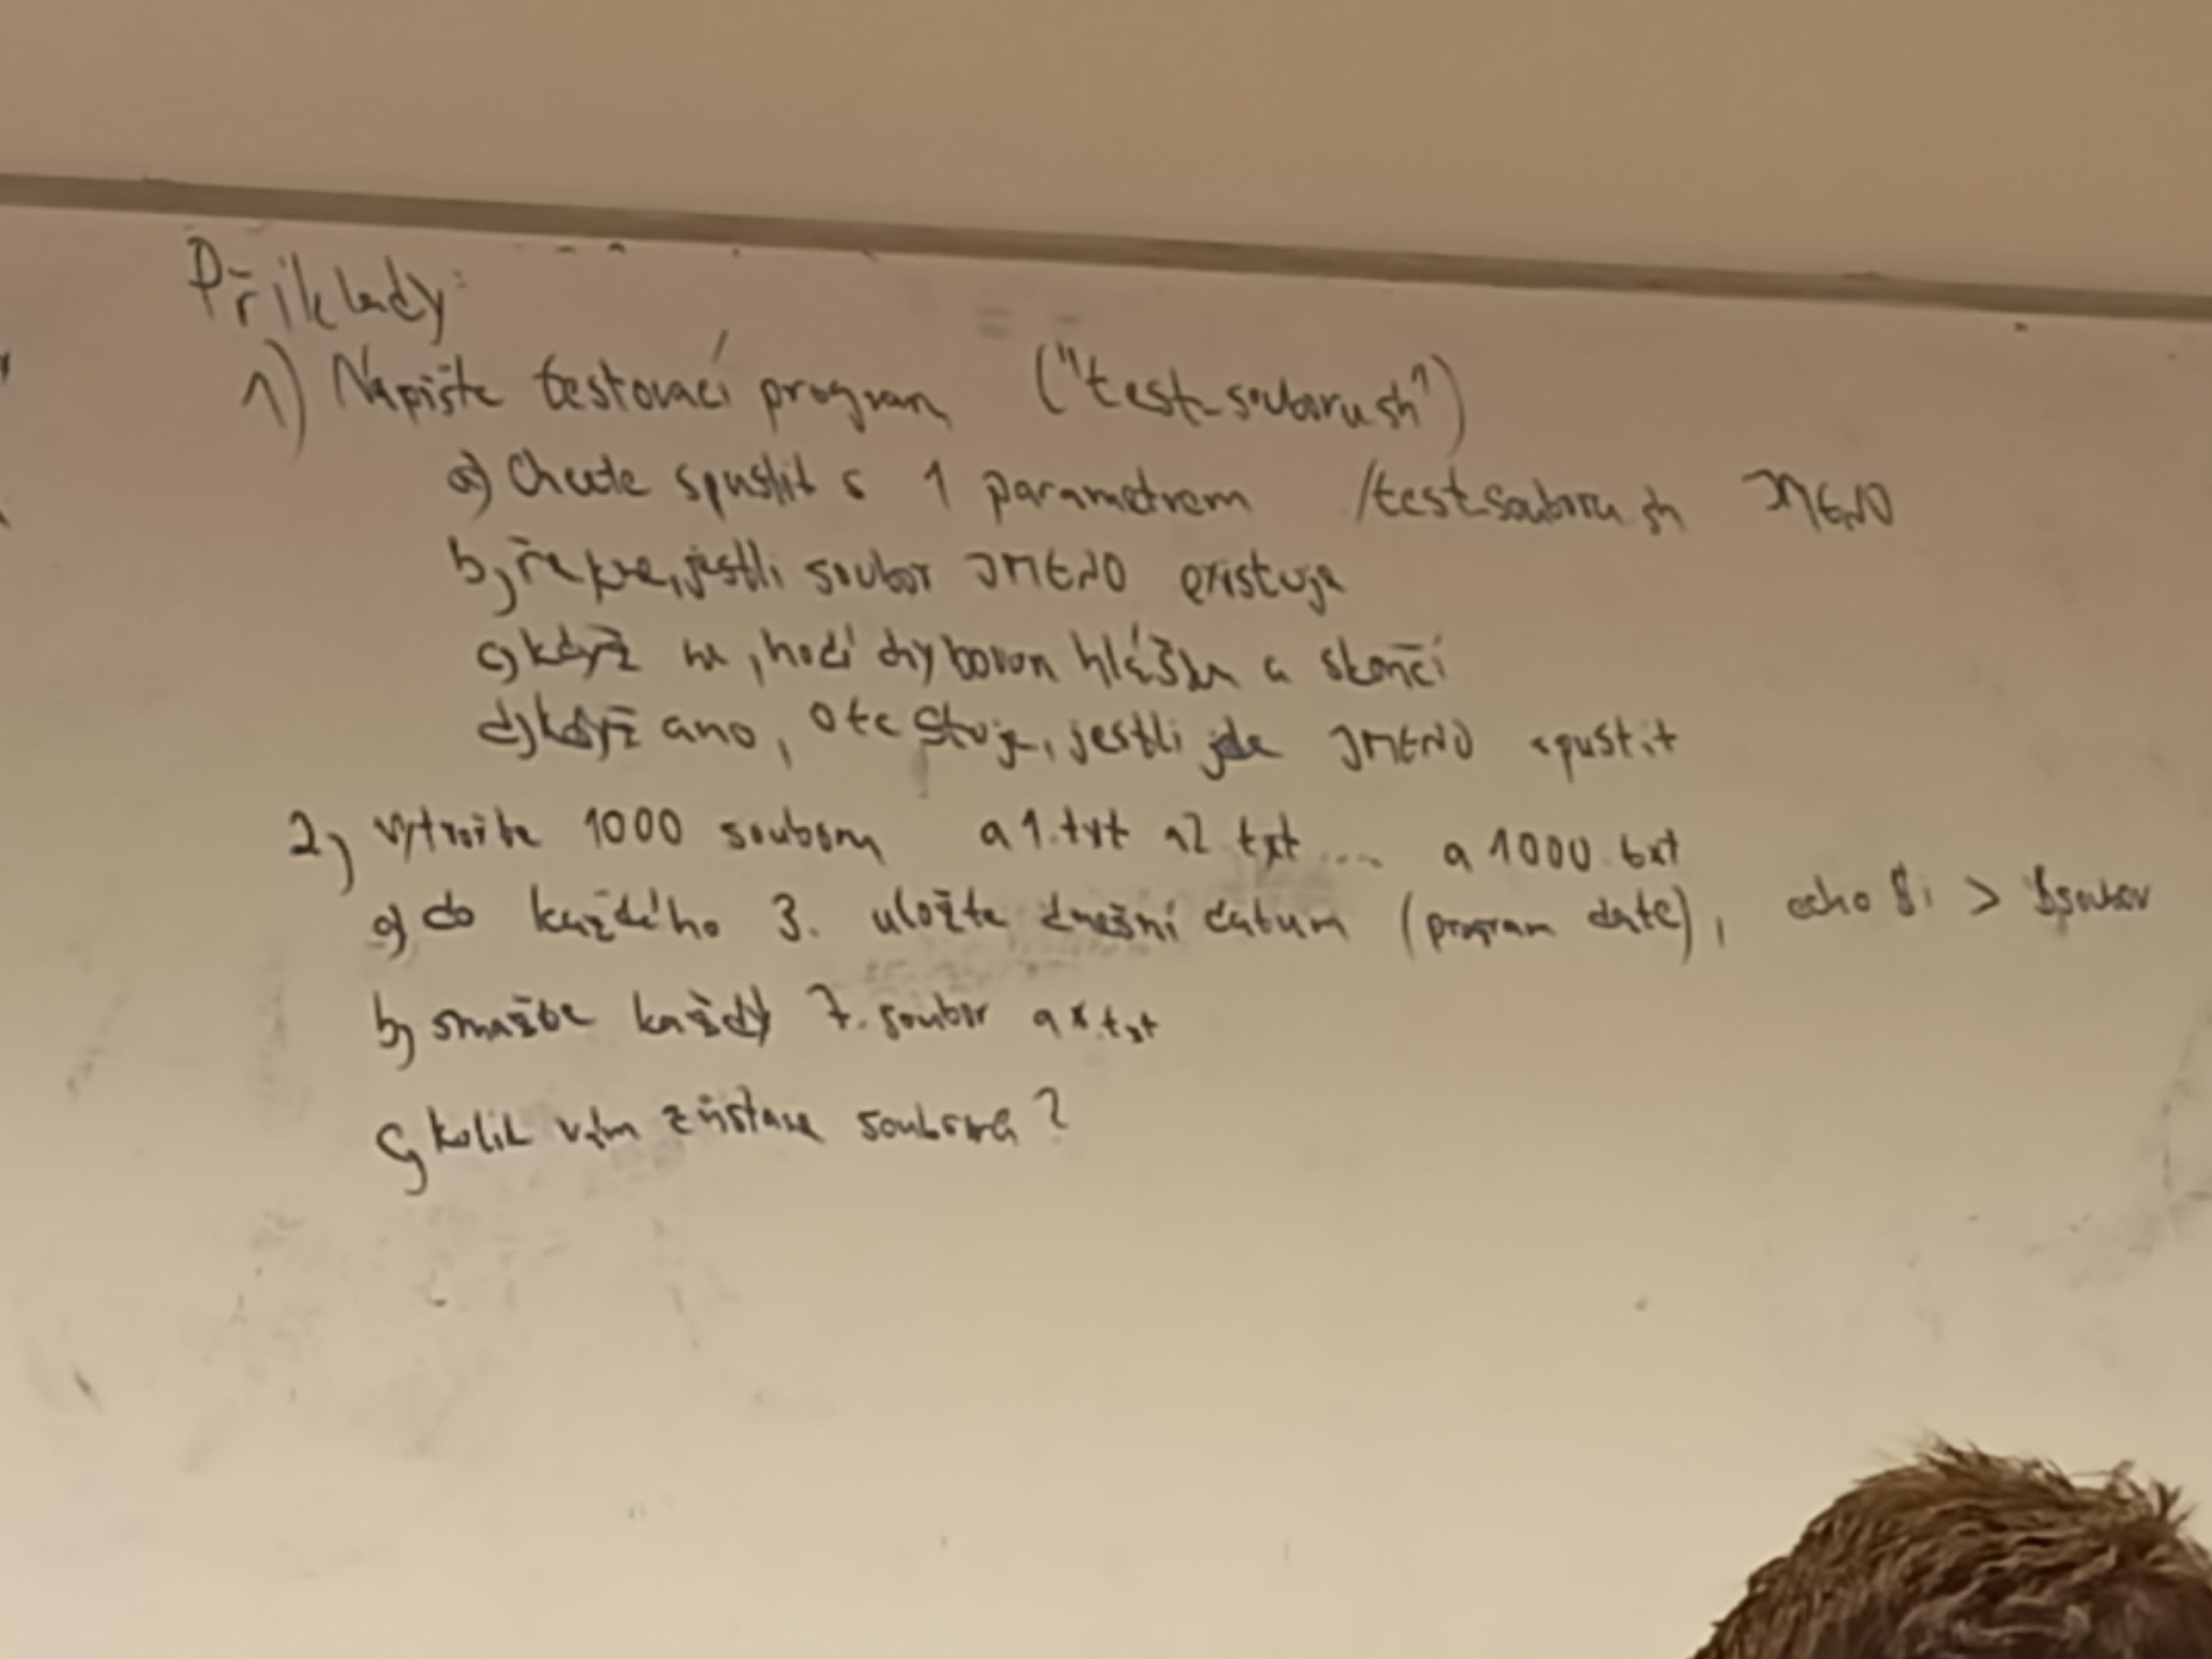 Příklady:
1) Napište testovací program ("test_souboru.sh")
a) Chcete spustit s 1 parametrem ./test_souboru.sh JMENO
b) řekne, jestli soubor JMENO existuje
c) když ne, hodí chybovou hlášku a skončí
d) když ano, otestuje, jestli jde JMENO spustit
2) vytvořte 1000 souborů a1.txt a2.txt ... a1000.txt
a) do každého 3. uložte dnešní datum (program date), echo $i > $soubor
b) smažte každý 7. soubor ax.txt
c) kolik vám zůstane souborů?